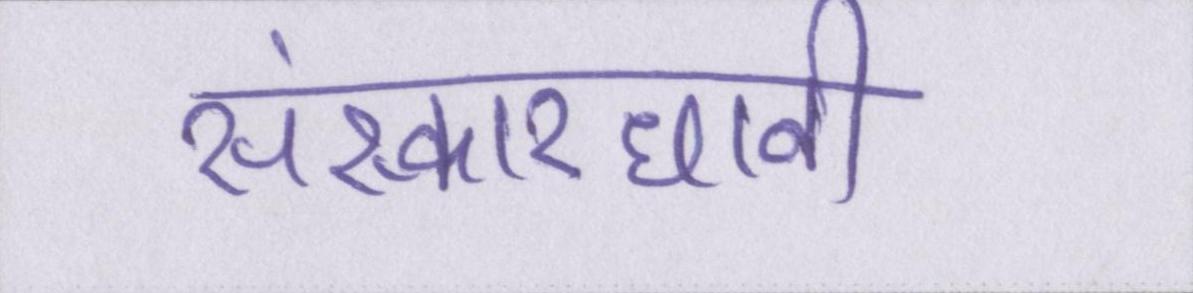 संस्कारधावी